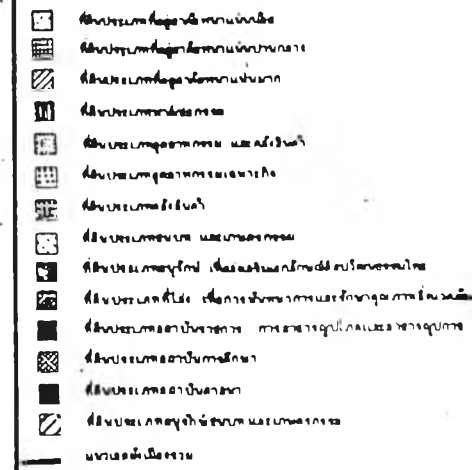 ที่ดินประเภทที่อยู่อาศัยหนาแน่นน้อย
ที่ดินประเภทที่อยู่อาศัยหนาแน่นปานกลาง
ที่ดินประเภทที่อยู่อาศัยหนาแน่นมาก
ที่ดินประเภทพาณิชยกรรม
ที่ดินประเภทอุตสาหกรรม และคลังสินค้า
ที่ดินประเภทอุตสาหกรรมเฉพาะกิจ
ที่ดินประเภทคลังสินค้า
ที่ดินประเภทชนบท และเกษตรกรรม
ที่ดินประเภทอนุรักษ์ เพื่อส่งเสริมเอกลักษณ์ศิลปวัฒนธรรมไทย
ที่ดินประเภทที่โล่ง เพื่อการนันทนาการและรักษาคุณภาพสิ่งแวดล้อม
ที่ดินประเภทสถาบันราชการ การสาธารณูปโภคและสาธารณูปการ
ที่ดินประเภทสถาบันการศึกษา
ที่ดินประเภทสถาบันศาสนา
ที่ดินประเภทอนุรักษ์ชนบทและเกษตรกรรม
แนวเขตผังเมืองรวม